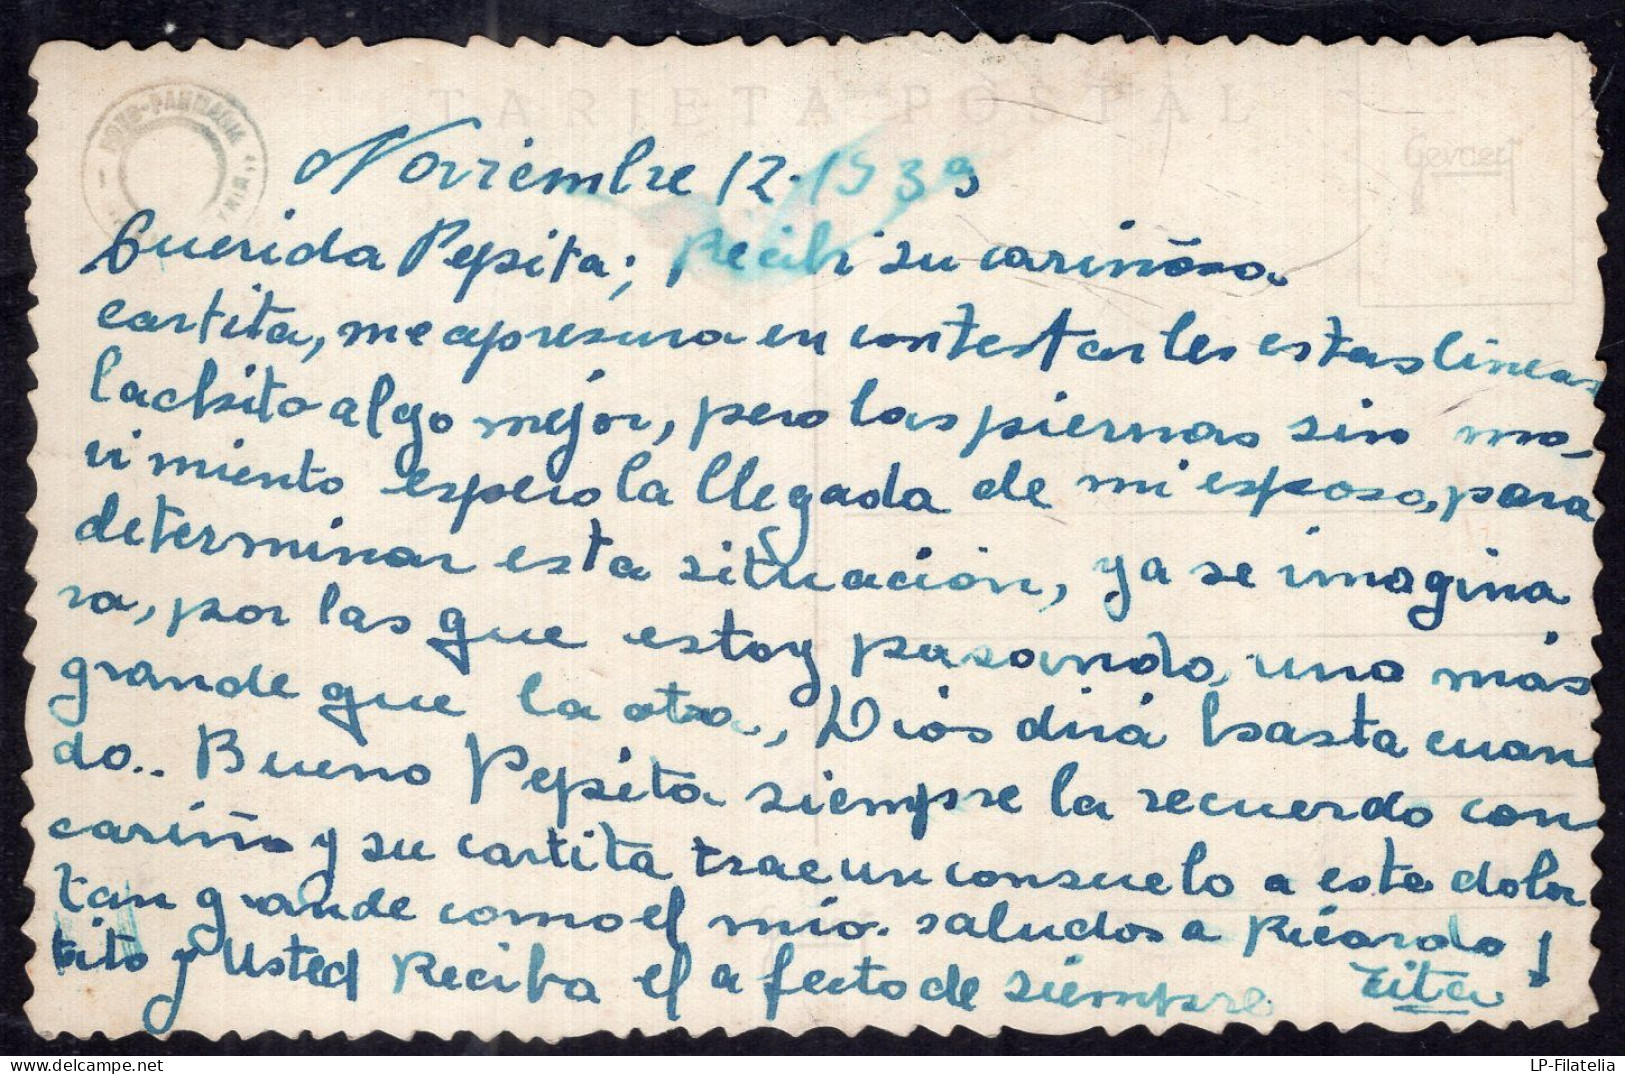 TARJETA POSTAL
Gevaert
Noviembre 12-1939
Querida Pepita; Recibi su cariñosa
cartita, me apresura en contestarles estas lineas
lachito algo mejor, pero las piernas sin mo,
vimiento espero la llegada de mi esposo, para
determinar esta situación, ya se imagina
ra, por las que estoy pasando, una más
grande que la otra, Dios dirá hasta cuan
do.. Bueno Pepita siempre la recuerdo con
cariño y su cartita trae un consuelo a este dolor
tan grande como el mio. saludos a Ricardo
tito y Usted Reciba el afecto de siempre Tita
LP-Filatelia